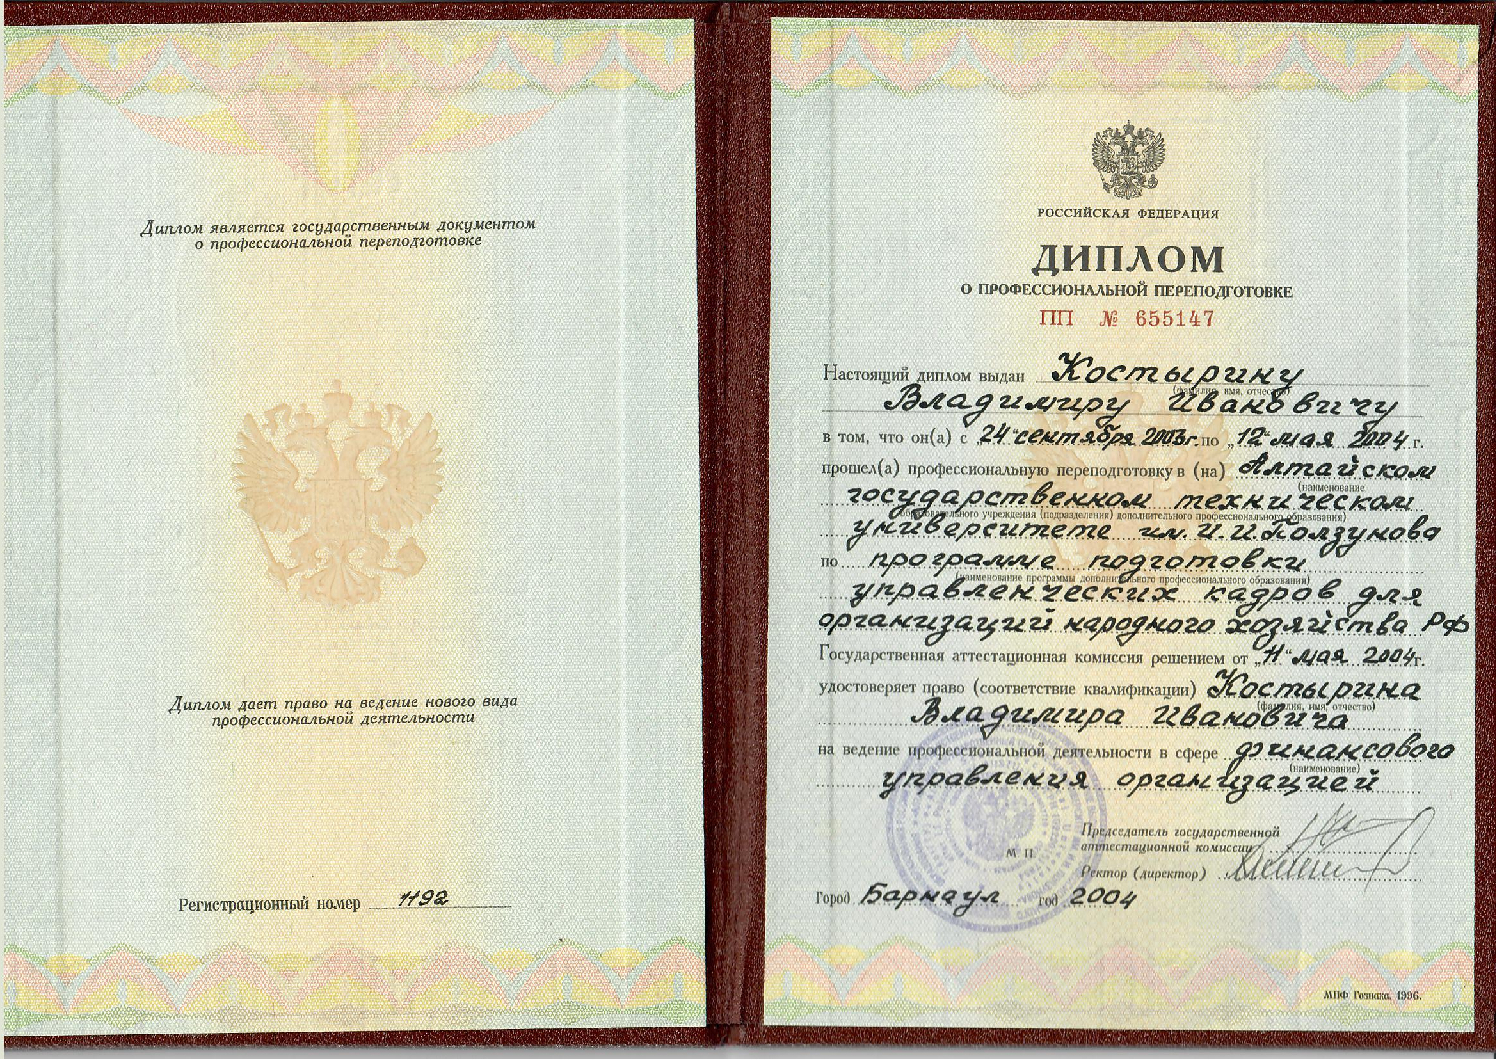 Диплом является государственным документом
о профессиональной переподготовке
Диплом дает право на ведение нового вида
профессиональной деятельности
Регистрационный номер 1192
РОССИЙСКАЯ ФЕДЕРАЦИЯ
ДИПЛОМ
О ПРОФЕССИОНАЛЬНОЙ ПЕРЕПОДГОТОВКЕ
ПП № 655147
Настоящий диплом выдан Костырину
(фамилия, имя, отчество)
Владимиру Ивановичу
в том, что он(а) с „24“ сентября 2003г. по „12“ мая 2004 г.
прошел(а) профессиональную переподготовку в (на) Алтайском
(наименование
государственном техническом
образовательного учреждения (подразделения) дополнительного профессионального образования)
университете им. И.И. Ползунова
по программе подготовки
(наименование программы дополнительного профессионального образования)
управленческих кадров для
организаций народного хозяйства РФ
Государственная аттестационная комиссия решением от „11“ мая 2004г.
удостоверяет право (соответствие квалификации) Костырина
(фамилия, имя, отчество)
Владимира Ивановича
на ведение профессиональной деятельности в сфере финансового
(наименование)
управления организацией
Председатель государственной
аттестационной комиссии
М П
Ректор (директор)
Город Барнаул год 2004
МПФ Гознака. 1996.